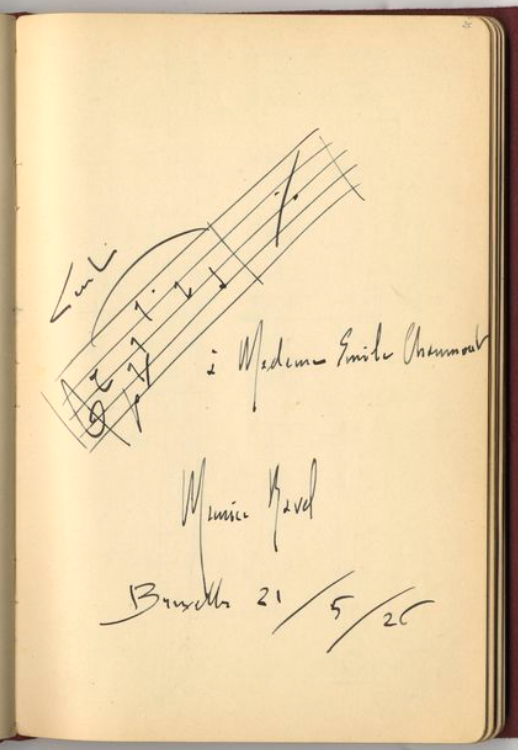 Lent
à Madame Emile Chaumont
Maurice Ravel
Bruxelles 21/5/26